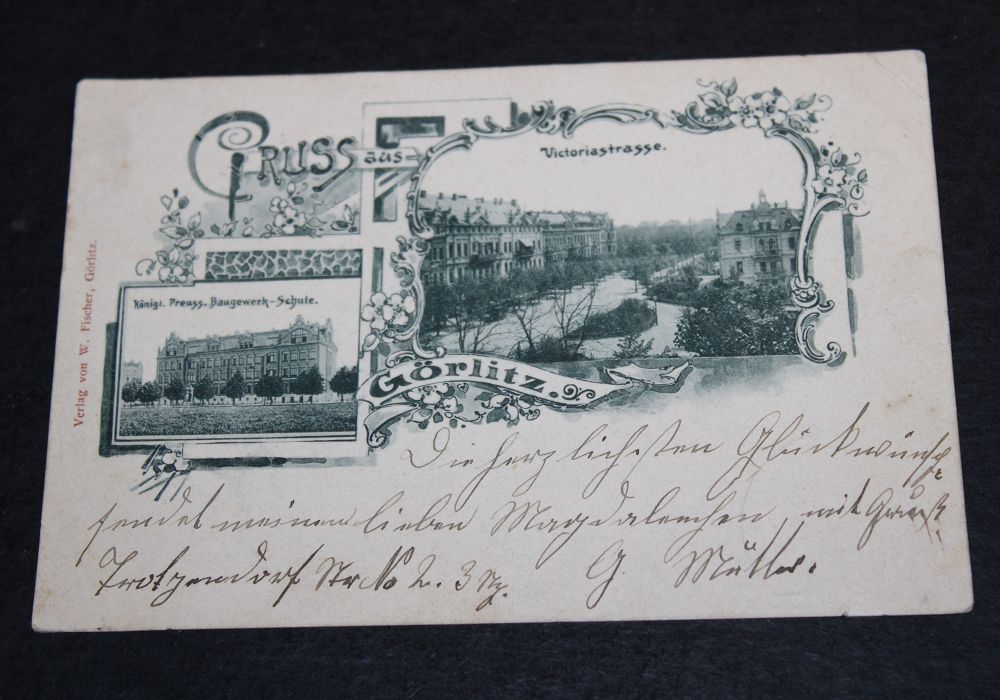 Gruss aus
Victoriastrasse.
Königl. Preuss. Baugewerk-Schule.
Görlitz.
Verlag von W. Fischer, Görlitz.
Die herzlichsten Glückwünsche
sendet meinen lieben Magdalenchen mit Gruß
Trotzendorf Str No 2. 3 Stg.
G. Müller.